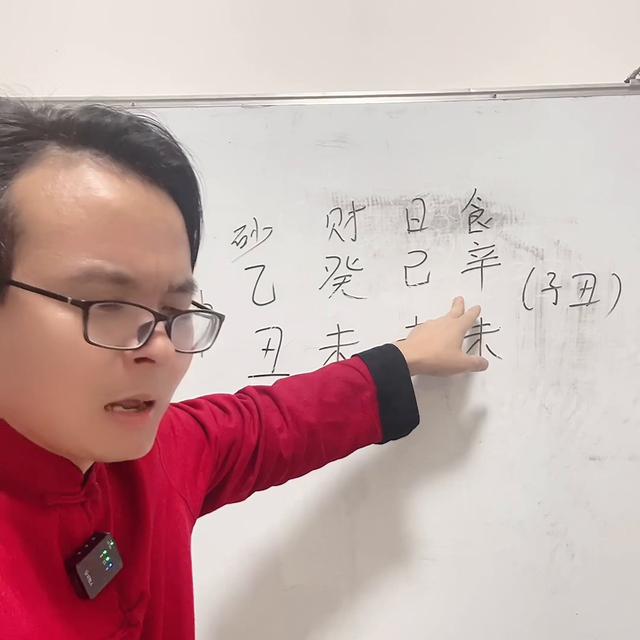 砂 财 日 食
乙 癸 己 辛 (子丑)
丑 未 未